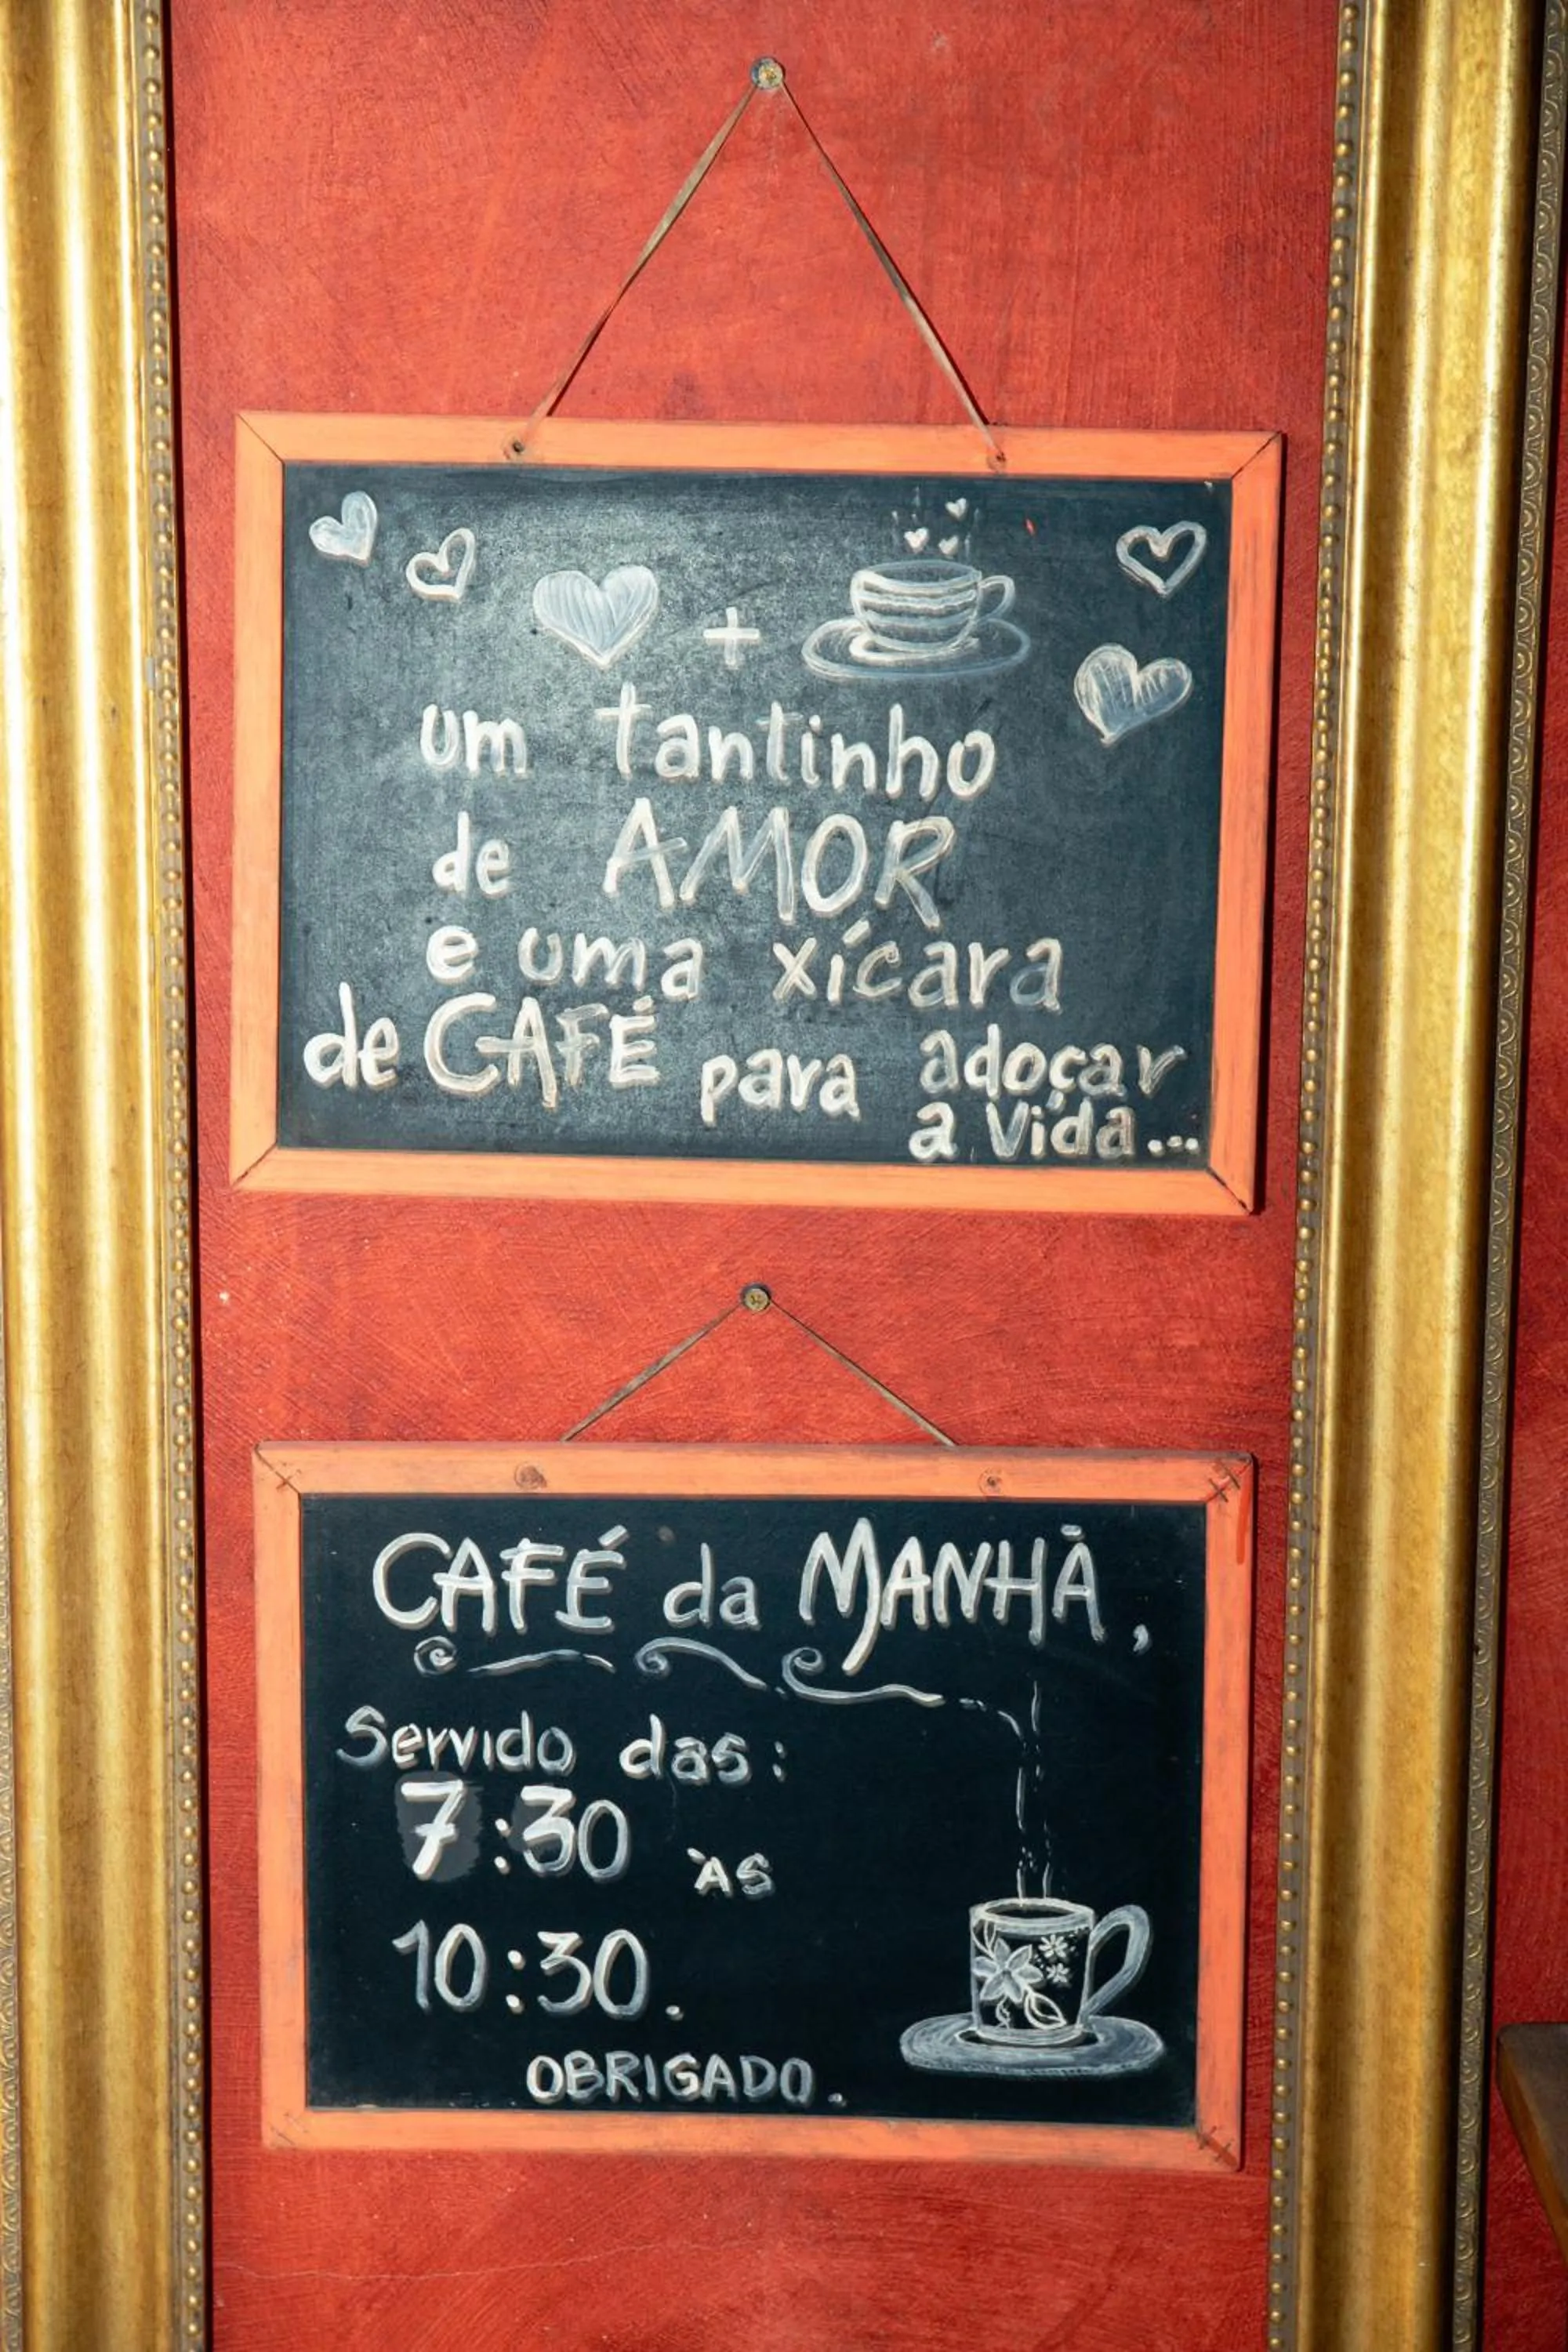 +
um tantinho
de AMOR
e uma xícara
de CAFÉ para adoçar
a vida...
CAFÉ da MANHÃ,
Servido das:
7:30 ÀS
10:30.
OBRIGADO.